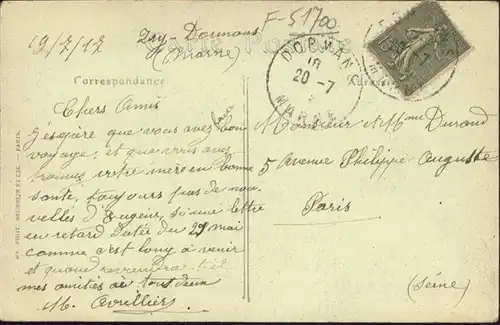 19/7/17
Dormans
(Marne)
F-51700
Carte Postale
DORMANS
18
20-7
MARNE
Correspondance
Chers Amis
J'espère que vous avez fait bon
voyage; et que vous avez
trouvés votre mère en bonne
santé, toujours pas de nou
velles d'Eugène, si une lettre
en retard datée du 29 mai
comme c'est long à venir
et quand reviendra-t-il
mes amitiés à tous deux
M.
Monsieur et Mme Durand
5 Avenue Philippe Auguste
Paris
(Seine)